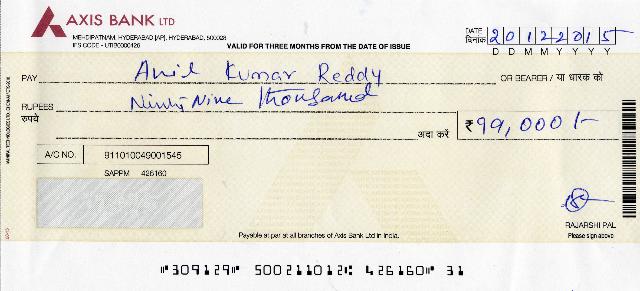 AXIS BANK LTD
MEHDIPATNAM, HYDERABAD [AP], HYDERABAD, 500028
IFS CODE - UTIB0000426
VALID FOR THREE MONTHS FROM THE DATE OF ISSUE
DATE
दिनांक 20122015
D D M M Y Y Y Y
PAY Anil Kumar Reddy OR BEARER / या धारक को
RUPEES Ninty Nine Thousand
रुपये
अदा करें ₹ 99,000/-
A/C NO. 911010049001545
SAPPM 426160
RAJARSHI PAL
Payable at par at all branches of Axis Bank Ltd in India.
Please sign above
"309129" 500211012: 426160" 31